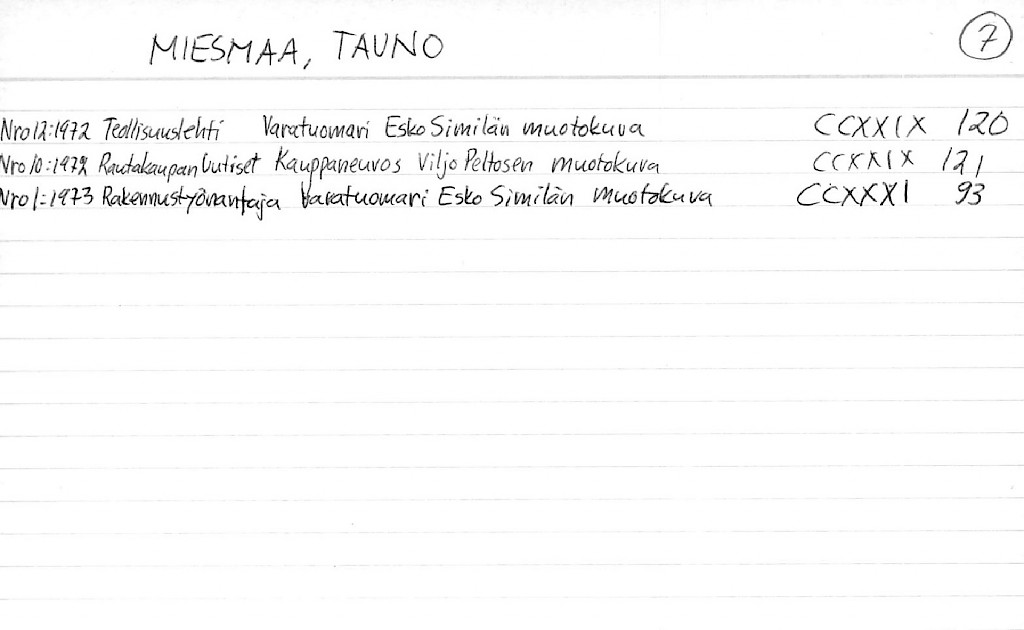 MIESMAA, TAUNO 7
Nro 12:1972 Teollisuuslehti Varatuomari Esko Similän muotokuva CCXXIX 120
Nro 10:1972 Rautakaupan Uutiset Kauppaneuvos Viljo Peltosen muotokuva CCXXIX 121
Nro 1:1973 Rakennustyönantaja Varatuomari Esko Similän muotokuva CCXXXI 93